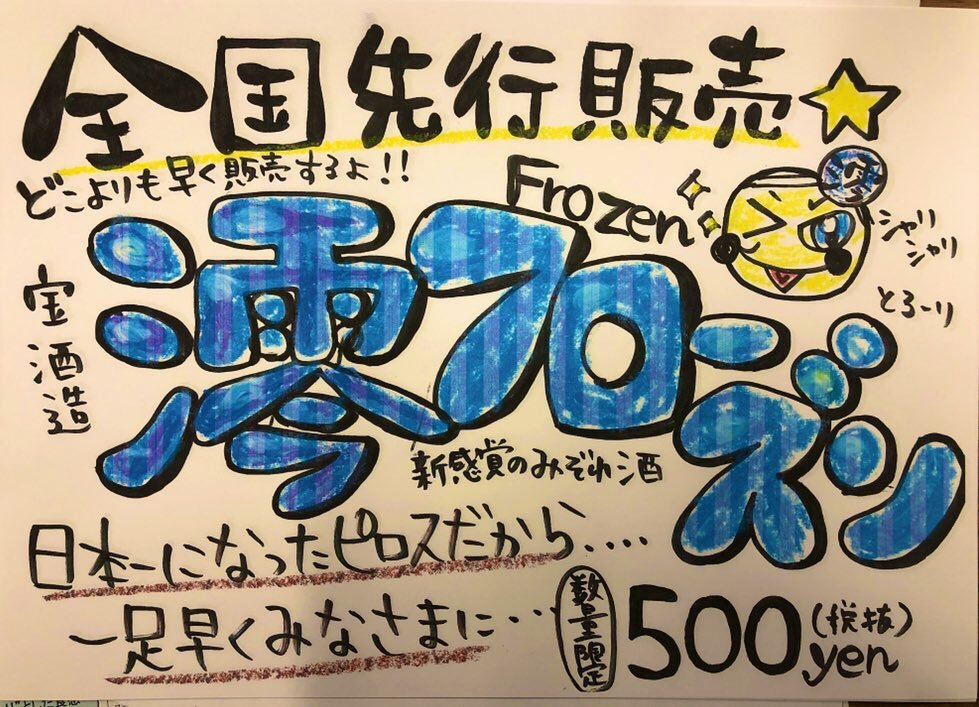 全国先行販売
どこよりも早く販売するよ!!
Frozen
シャリ
シャリ
とろーり
宝酒造
澪フローズン
新感覚のみぞれ酒
日本一になったピロスだから....
一足早くみなさまに...
数量限定
500yen(税抜)